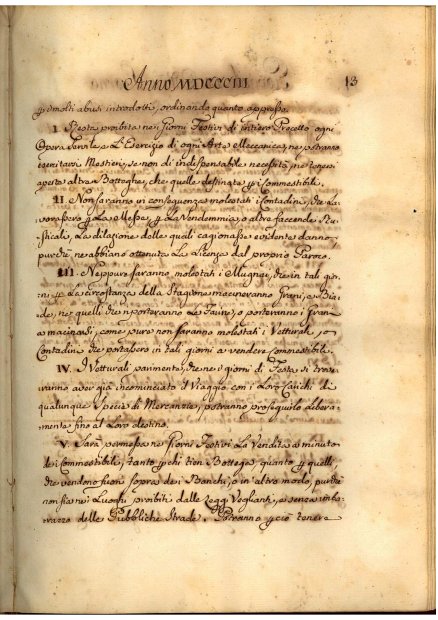 Anno MDCCCIII
13
p molti abusi introdotti, ordinando quanto appresso.
I. Resta proibita nei Giorni Festivi di intiero Precetto ogni
Opera Servile, e L'Esercizio di ogni Arte Meccanica, ne potranno
esercitarsi Mestieri, se non di indispensabile necessità, ne tenersi
aperte altre Botteghe, che quelle destinate p i Commestibili.
II. Non saranno in conseguenza molestati i Contadini, che La-
vorassero p La Messe, p La Vendemmia, o altre faccende Ru-
sticali, La dilazione delle quali cagionasse evidente danno,
purchè ne abbiano ottenuta La Licenza dal proprio Parroco.
III. Neppure saranno molestati i Mugnai, che in tali gior-
ni p La circostanza della Stagione macineranno Grani, e Bia-
de, ne quelli che riporteranno Le Farine, o porteranno i Grani
a macinarsi, come pure non saranno molestati i Vetturali, o
Contadini che portassero in tali giorni a vendere Commestibili.
IV. I Vetturali parimente, che nei giorni di Festa si trove-
ranno aver già incominciato il Viaggio con i Loro Carichi di
qualunque Specie di Mercanzie, potranno proseguirlo Libera-
mente fino al Loro destino.
V. Sarà permessa nei Giorni Festivi La Vendita a minuto
dei Commestibili, tanto p chi tien Bottega, quanto p quelli,
che vendono fuori sopra dei Banchi, o in altro modo, purchè
non sia nei Luoghi proibiti dalle Leggi Veglianti, e senza imba-
razzo delle Pubbliche Strade. Potranno p ciò tenere